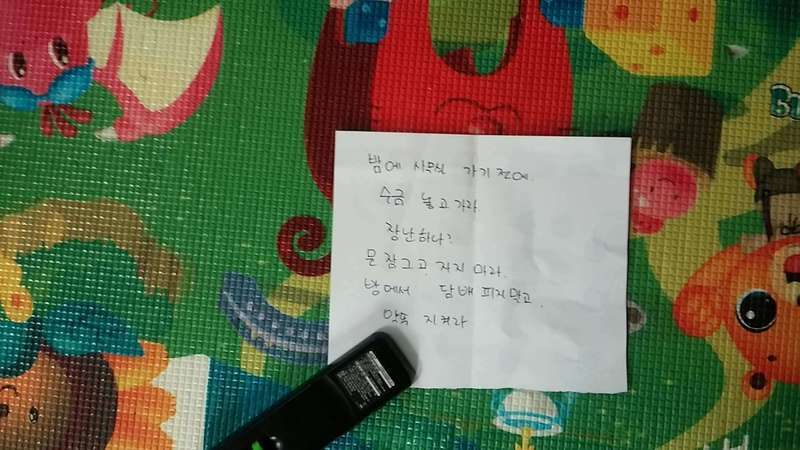 밤에 사무실 가기 전에.
수금 놓고 가라.
장난하나?
문 잠그고 자지 마라.
방에서 담배 피지말고.
약속 지켜라